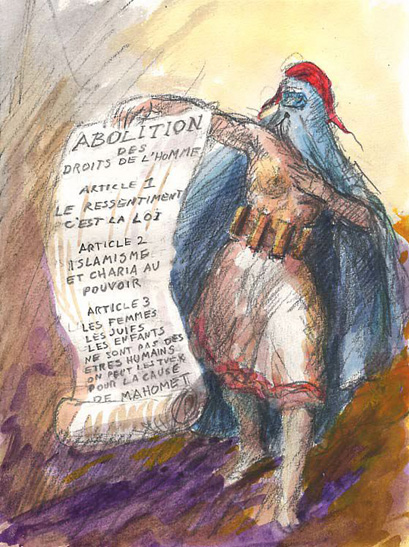 ABOLITION
DES
DROITS DE L'HOMME
ARTICLE 1
LE RESSENTIMENT
C'EST LA LOI
ARTICLE 2
ISLAMISME
ET CHARIA AU
POUVOIR
ARTICLE 3
LES FEMMES
LES JUIFS
LES ENFANTS
NE SONT PAS DES
ETRES HUMAINS
ON PEUT LES TUER
POUR LA CAUSE
DE MAHOMET